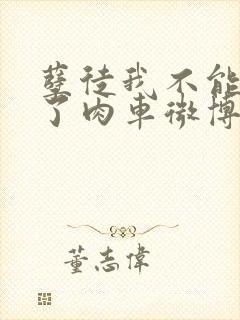 孽徒我不能
了肉车微博
董志偉